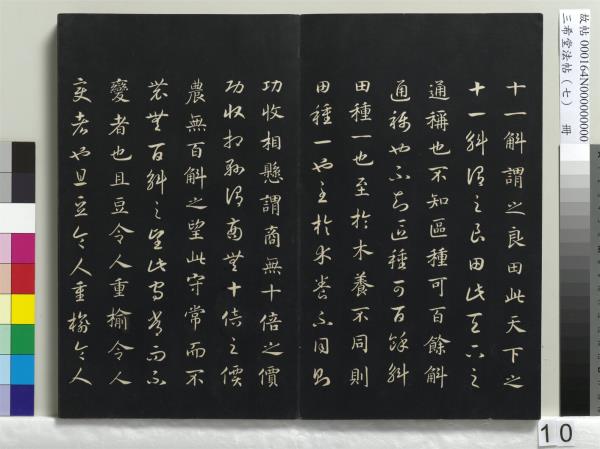 十一斛謂之良田此天下之
十一斛謂之良田此天下之
通稱也不知區種可百餘斛
通稱也不知區種可百餘斛
田種一也至於木養不同則
田種一也至於木養不同則
功收相懸謂商無十倍之價
功收相懸謂商無十倍之價
農無百斛之望此守常而不
農無百斛之望此守常而不
變者也且豆令人重榆令人
變者也且豆令人重榆令人
故帖 000164N000000000
三希堂法帖（七） 冊
10